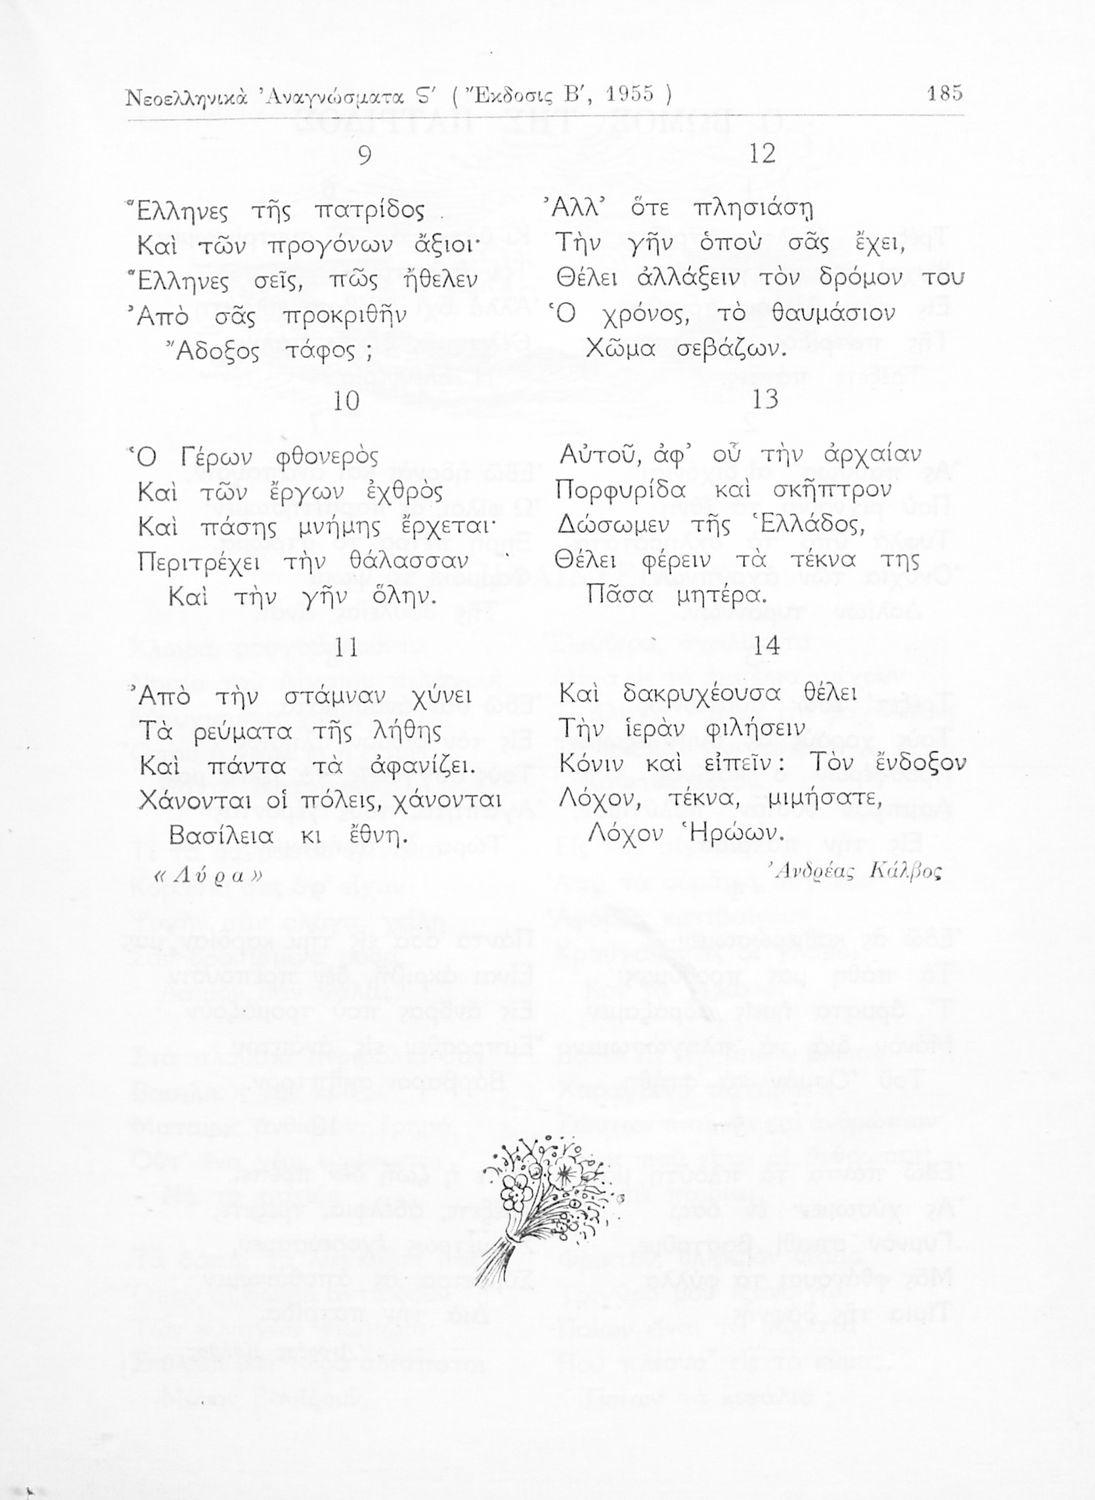 Νεοελληνικὰ Ἀναγνώσματα Ϛ′ ( Ἔκδοσις Β′, 1955 ) 185
9
Ἕλληνες τῆς πατρίδος
Καὶ τῶν προγόνων ἄξιοι·
Ἕλληνες σεῖς, πῶς ἤθελεν
Ἀπὸ σᾶς προκριθῆν
Ἄδοξος τάφος ;
10
Ὁ Γέρων φθονερὸς
Καὶ τῶν ἔργων ἐχθρὸς
Καὶ πάσης μνήμης ἔρχεται·
Περιτρέχει τὴν θάλασσαν
Καὶ τὴν γῆν ὅλην.
11
Ἀπὸ τὴν στάμναν χύνει
Τὰ ρεύματα τῆς λήθης
Καὶ πάντα τὰ ἀφανίζει.
Χάνονται οἱ πόλεις, χάνονται
Βασίλεια κι ἔθνη.
«Λύρα»
12
Ἀλλ’ ὅτε πλησιάσῃ
Τὴν γῆν ὁποὺ σᾶς ἔχει,
Θέλει ἀλλάξειν τὸν δρόμον του
Ὁ χρόνος, τὸ θαυμάσιον
Χῶμα σεβάζων.
13
Αὐτοῦ, ἀφ’ οὗ τὴν ἀρχαίαν
Πορφυρίδα καὶ σκῆπτρον
Δώσωμεν τῆς Ἑλλάδος,
Θέλει φέρειν τὰ τέκνα της
Πᾶσα μητέρα.
14
Καὶ δακρυχέουσα θέλει
Τὴν ἱερὰν φιλήσειν
Κόνιν καὶ εἰπεῖν: Τὸν ἔνδοξον
Λόχον, τέκνα, μιμήσατε,
Λόχον Ἡρώων.
Ἀνδρέας Κάλβος